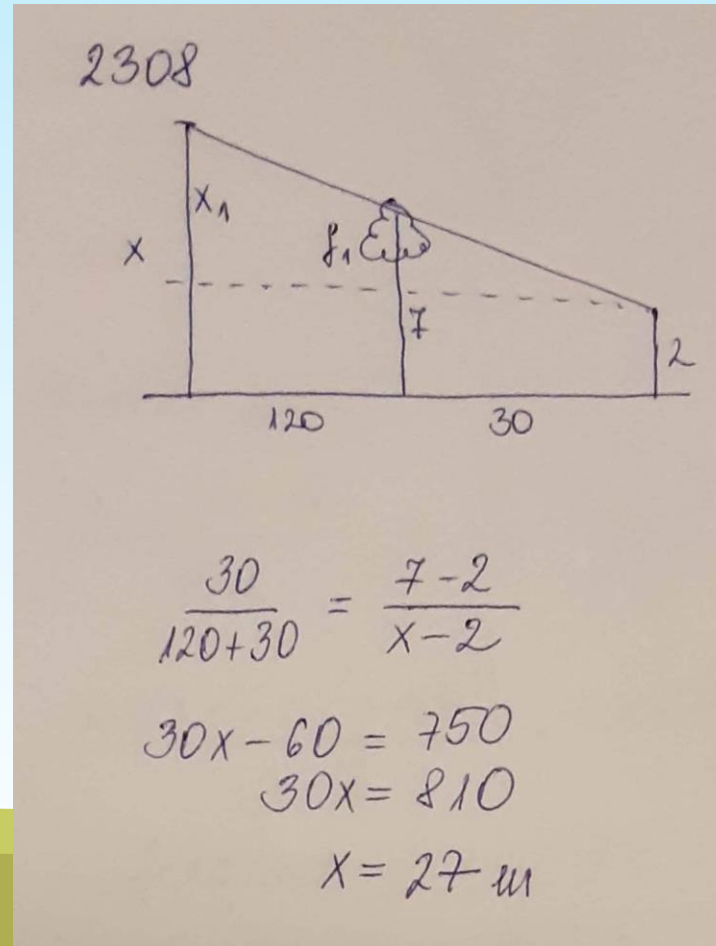 2308
x₁
x
f₁
7
2
120
30
30/(120+30) = (7-2)/(x-2)
30x - 60 = 750
30x = 810
x = 27 m